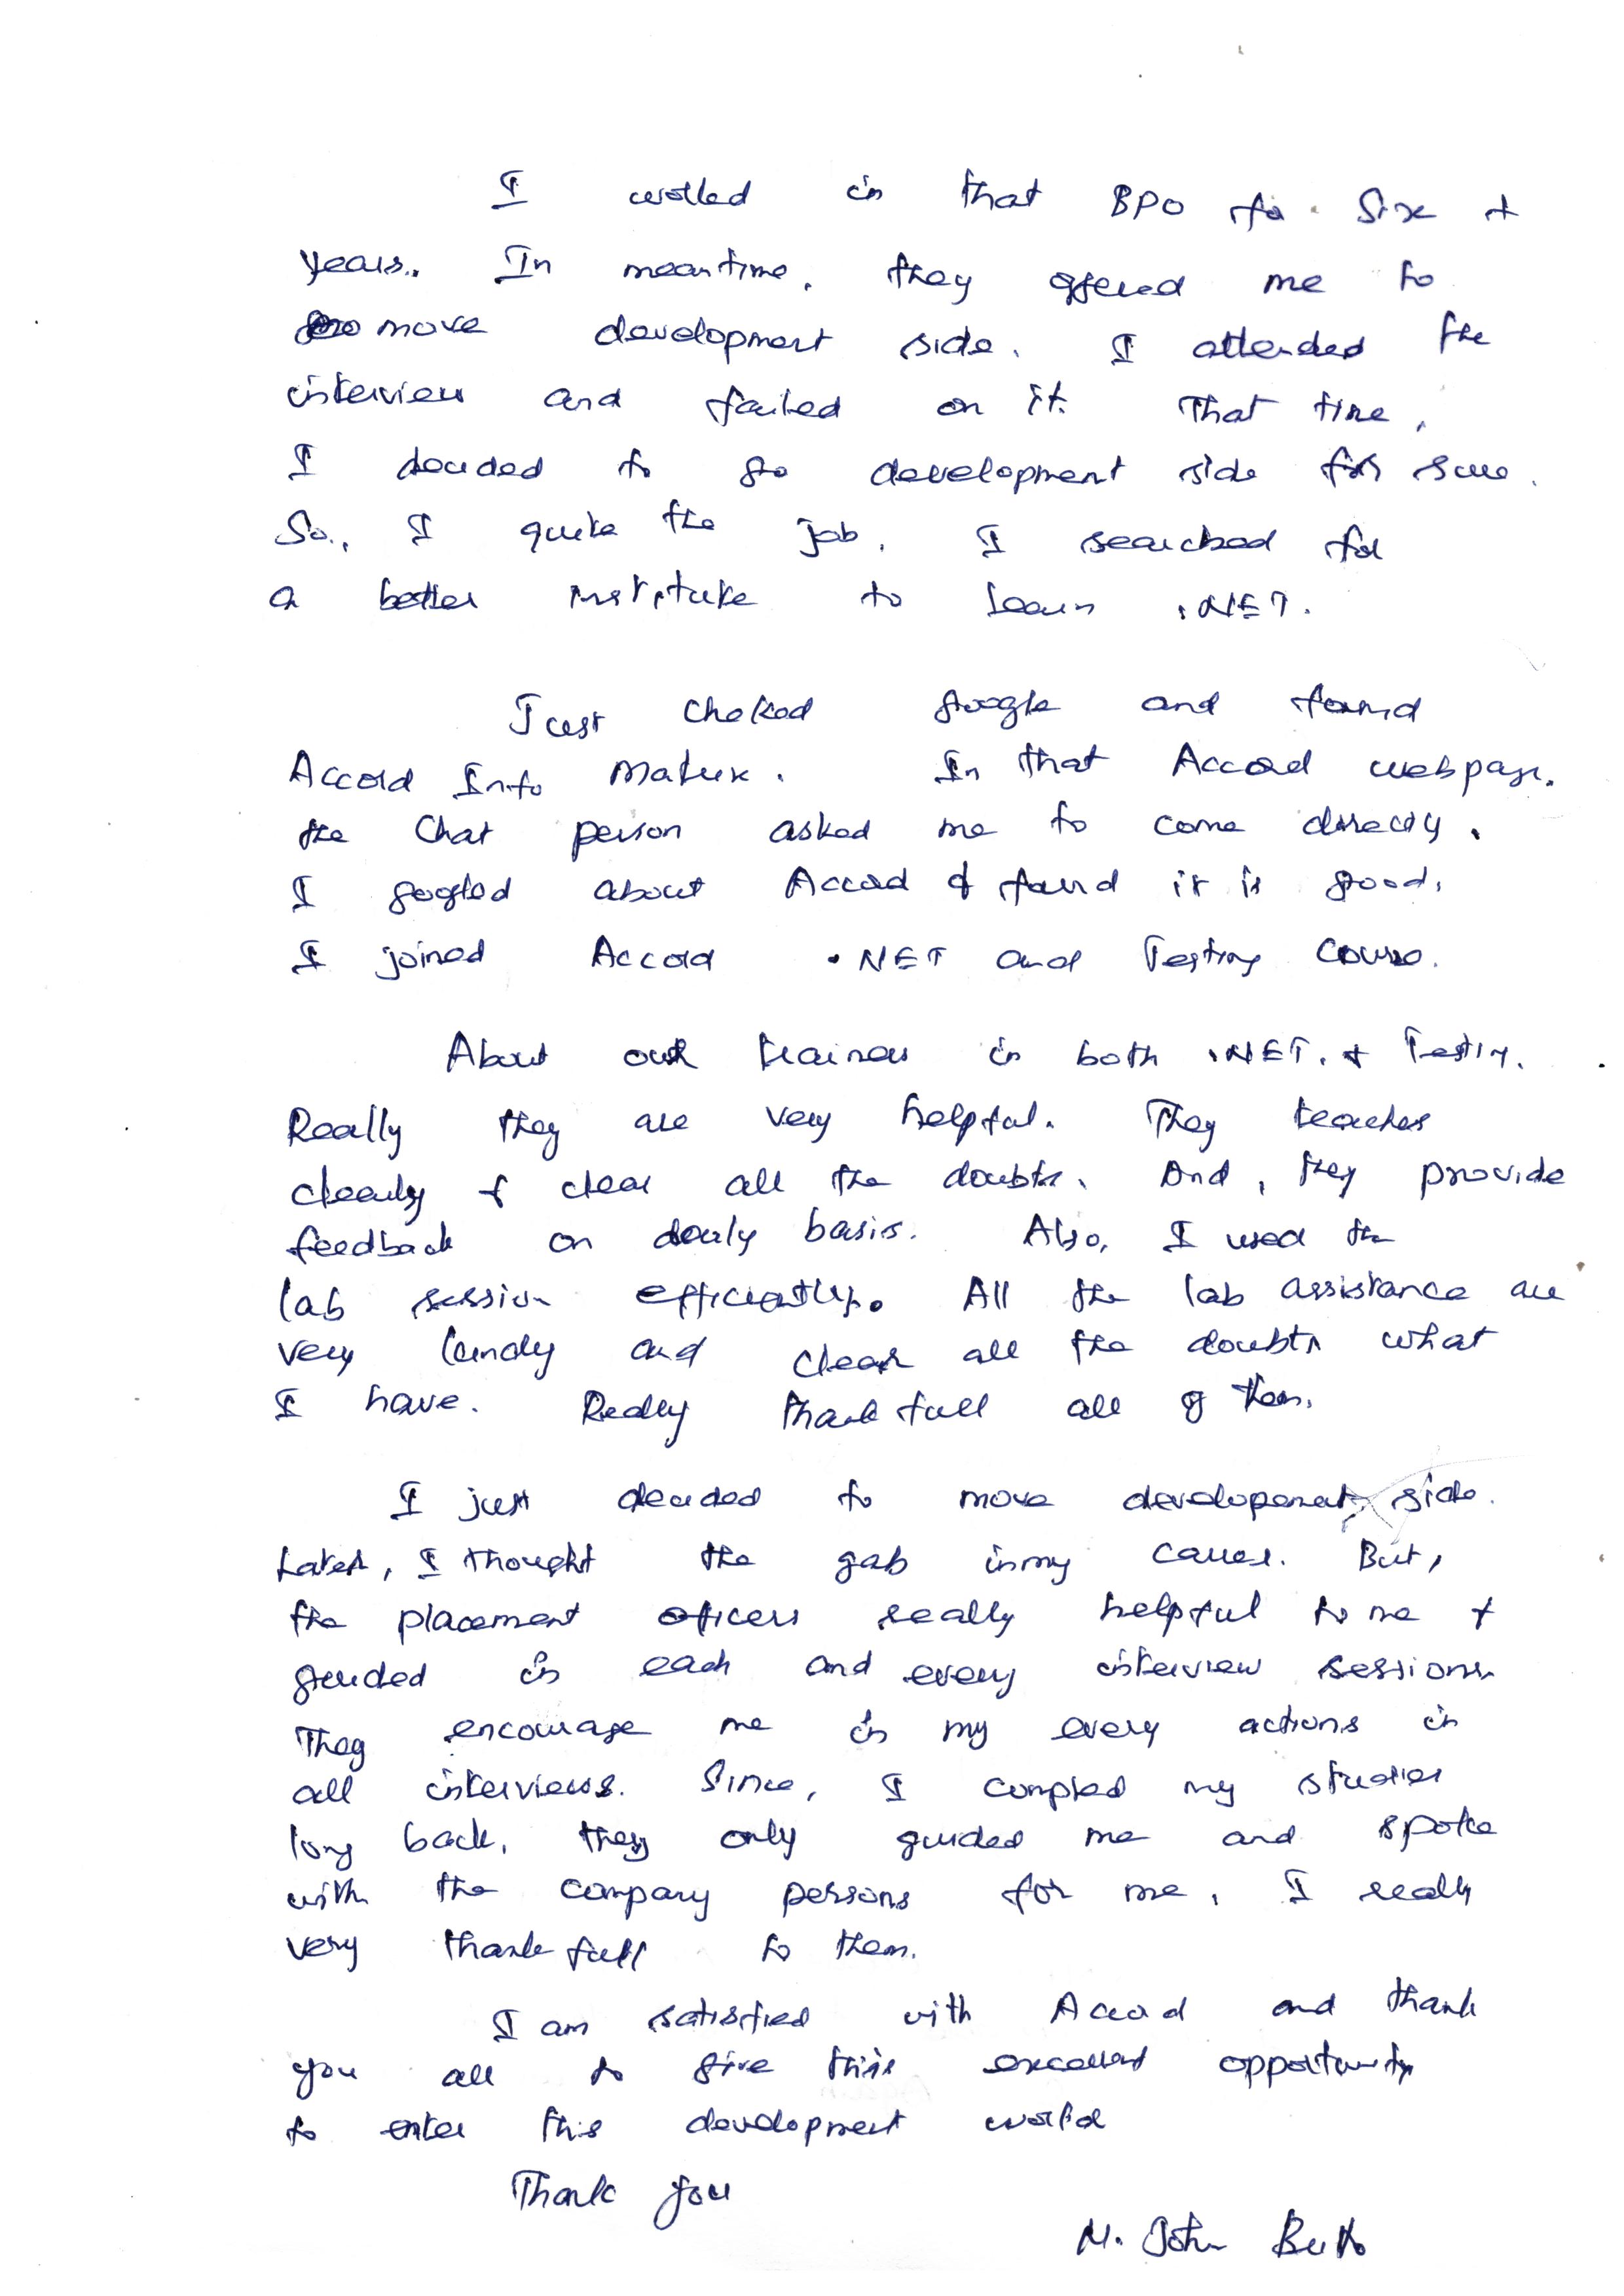 I worked in that BPO for six +
years. In meantime, they offered me to
move development side. I attended the
interview and failed on it. That time,
I decided to go development side for sure.
So, I quite the job. I searched for
a better institute to learn .NET.
Just cheked google and found
Accord Info Matrix. In that Accord webpage.
the Chat person asked me to come directly.
I googled about Accord & found it is good.
I joined Accord .NET and Testing course.
About our trainers in both .NET. & Testing.
Really they are very helpful. They teaches
clearly & clear all the doubts. And, they provide
feedback on daily basis. Also, I used the
lab session efficiently. All the lab assistance are
very kindly and clear all the doubts what
I have. Really thankfull all of them.
I just decided to move development side.
Later, I thought the gab in my career. But,
the placement officers really helpful to me &
guided in each and every interview sessions.
They encourage me in my every actions in
all interviews. Since, I compled my studies
long back, they only guided me and spoke
with the company persons for me. I really
very thankfull to them.
I am satisfied with Accord and thank
you all to give this excellent opportunity
to enter this development world
Thank you
N. John